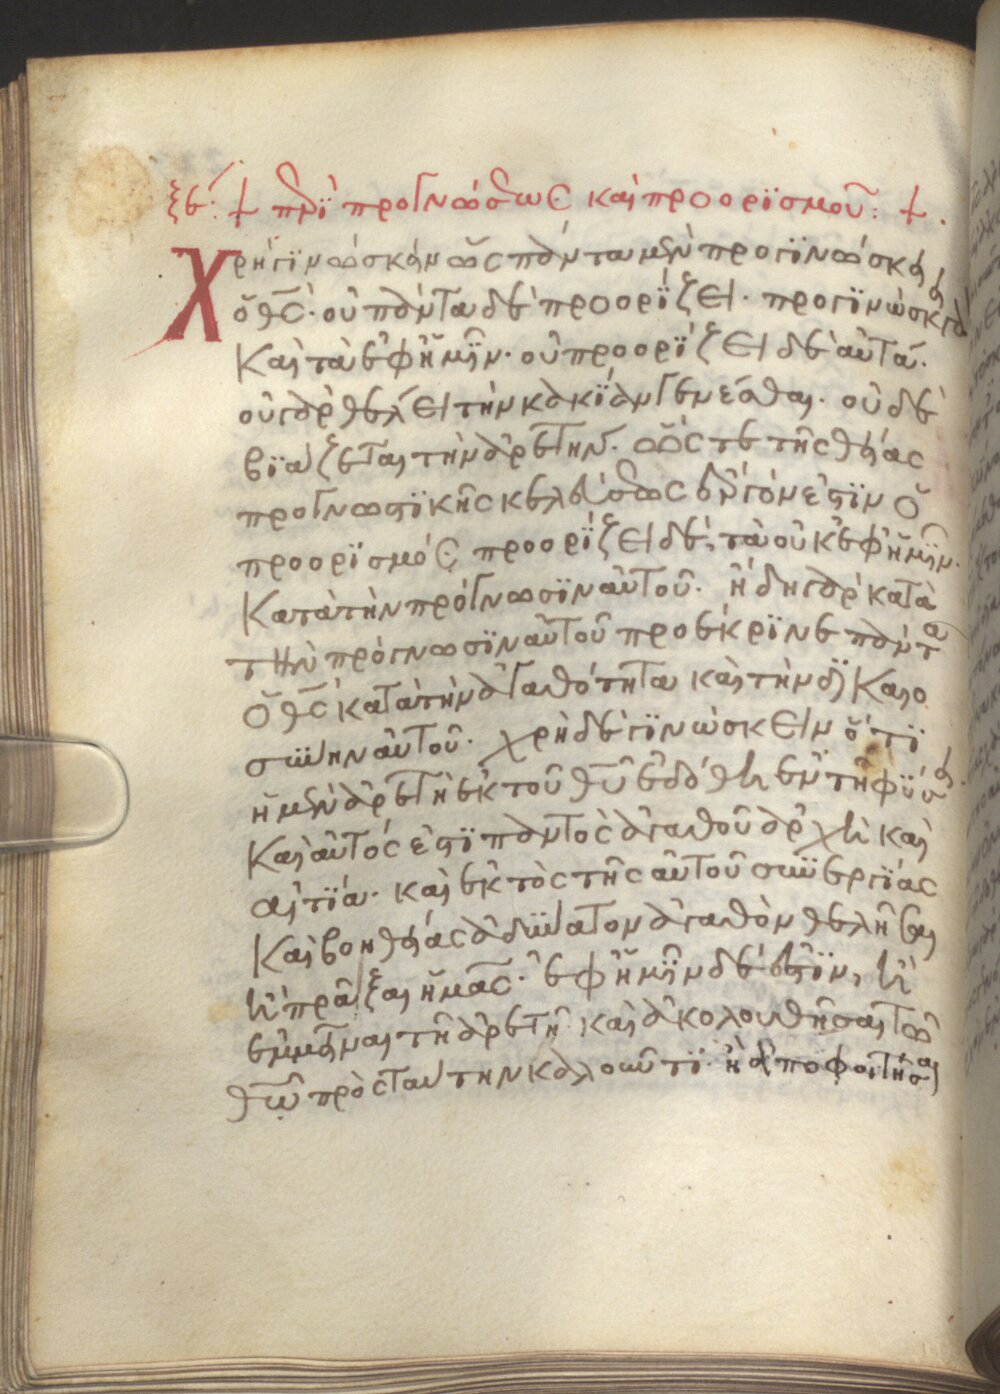 ξβ´: + περὶ προγνώσεως καὶ προορϊσμοῦ: +.
Χρὴ γϊνώσκειν ὡς πάντα μὲν προγϊνώσκει
ὁ θς̅· οὐ πάντα δὲ προορΐζει· προγϊνώσκει γὰρ
καὶ τὰ ἐφ ἡμῖν· οὐ προορΐζει δὲ αὐτά·
οὐ γὰρ θέλει τὴν κακΐαν γενέσθαι· οὐδὲ
βϊάζεται τὴν ἀρετήν· ὥς τε τῆς θείας
προγνωστϊκῆς κελεύσεως ἔργόν ἐστϊν ὁ
προορϊσμός προορΐζει δὲ, τὰ οὐκ ἐφ ἡμῖν·
κατὰ τὴν πρόγνωσϊν αὐτοῦ· ἤδη γὰρ κατὰ
τὴν πρόγνωσϊν αὐτοῦ προέκρϊνε πάντα
ὁ θς̅ κατὰ τὴν ἀγαθότητα καὶ τὴν δϊκαιο
σϋνην αὐτοῦ· χρὴ δὲ γϊνώσκειν ὅτϊ
ἡ μὲν ἀρετὴ ἐκ τοῦ θυ̅ ἐδόθη ἐν τῆ φϋσει·
καὶ αὐτός ἐστϊ παντὸς ἀγαθοῦ ἀρχὴ καὶ
αἰτϊα· καὶ ἐκτὸς τῆς αὐτοῦ σϋνεργϊας
καὶ βοηθείας ἀδϋνατον ἀγαθὸν θελῆσαι
ἢ πρᾶξαι ἡμᾶς· ἐφ ἡμῖν δέ ἐστϊν, ἢ
ἐμμεῖναι τῆ ἀρετῆ καὶ ἀκολουθῆσαι τῶ
θω̅ πρὸς ταύτην καλοῦντϊ· ἢ ἀποφοιτῆσαι